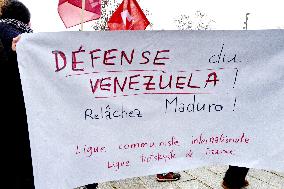 DÉFENSE du
VENEZUELA !
Relâchez Maduro !
Ligue communiste internationale
Ligue trotskyste de France